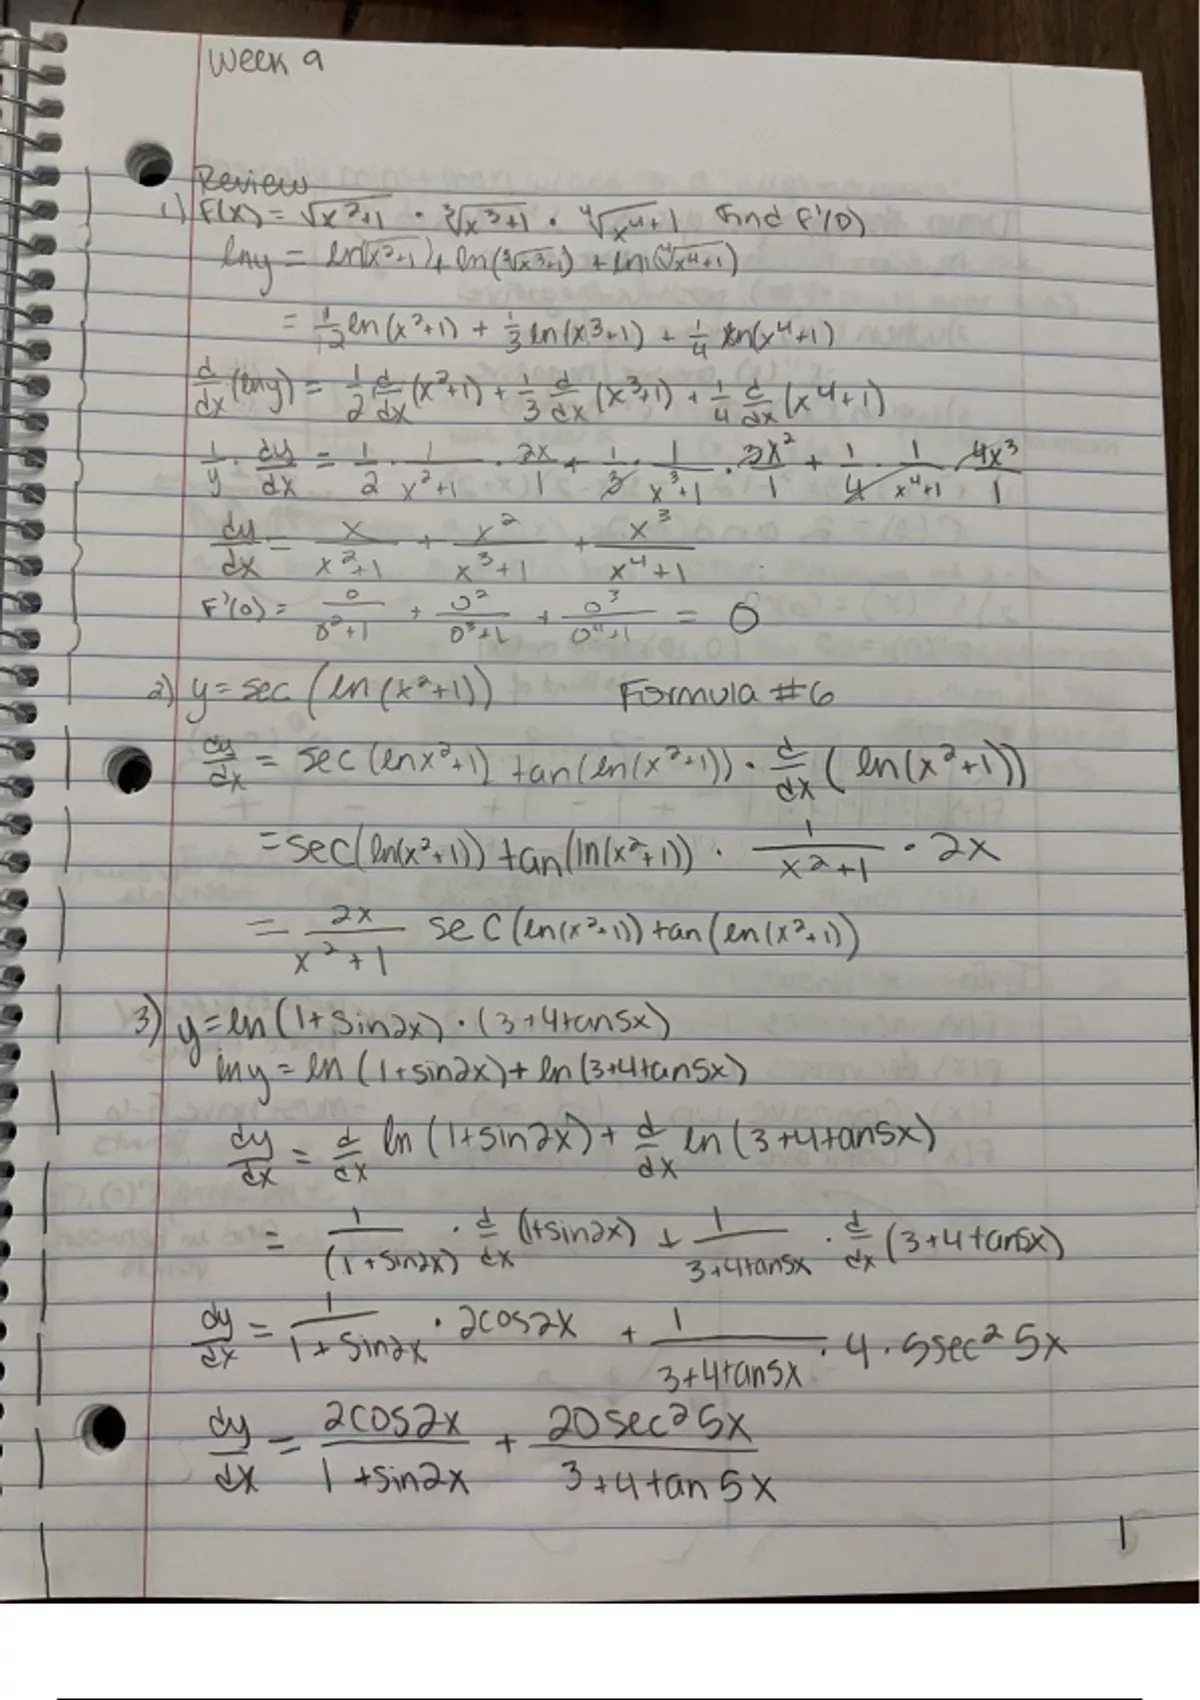 Week 9
Review
1) F(x) = √x²+1 · ∛x³+1 · ∜x⁴+1 find F'(0)
lny = ln(√x²+1) + ln(∛x³+1) + ln(∜x⁴+1)
= 1/2 ln(x²+1) + 1/3 ln(x³+1) + 1/4 ln(x⁴+1)
d/dx (lny) = 1/2 d/dx (x²+1) + 1/3 d/dx (x³+1) + 1/4 d/dx (x⁴+1)
1/y · dy/dx = 1/2 · 1/x²+1 · 2x/1 + 1/3 · 1/x³+1 · 3x²/1 + 1/4 · 1/x⁴+1 · 4x³/1
dy/dx = x/x²+1 + x²/x³+1 + x³/x⁴+1
F'(0) = 0/0²+1 + 0²/0³+1 + 0³/0⁴+1 = 0
2) y = sec (ln(x²+1)) Formula #6
dy/dx = sec (lnx²+1) tan(ln(x²+1)) · d/dx (ln(x²+1))
= sec(ln(x²+1)) tan(ln(x²+1)) · 1/x²+1 · 2x
= 2x/x²+1 sec(ln(x²+1)) tan(ln(x²+1))
3) y = ln(1+sin2x) · (3+4tan5x)
lny = ln(1+sin2x) + ln(3+4tan5x)
dy/dx = d/dx ln(1+sin2x) + d/dx ln(3+4tan5x)
= 1/(1+sin2x) · d/dx (1+sin2x) + 1/3+4tan5x · d/dx (3+4tan5x)
dy/dx = 1/1+sin2x · 2cos2x + 1/3+4tan5x · 4 · 5sec²5x
dy/dx = 2cos2x/1+sin2x + 20sec²5x/3+4tan5x
1